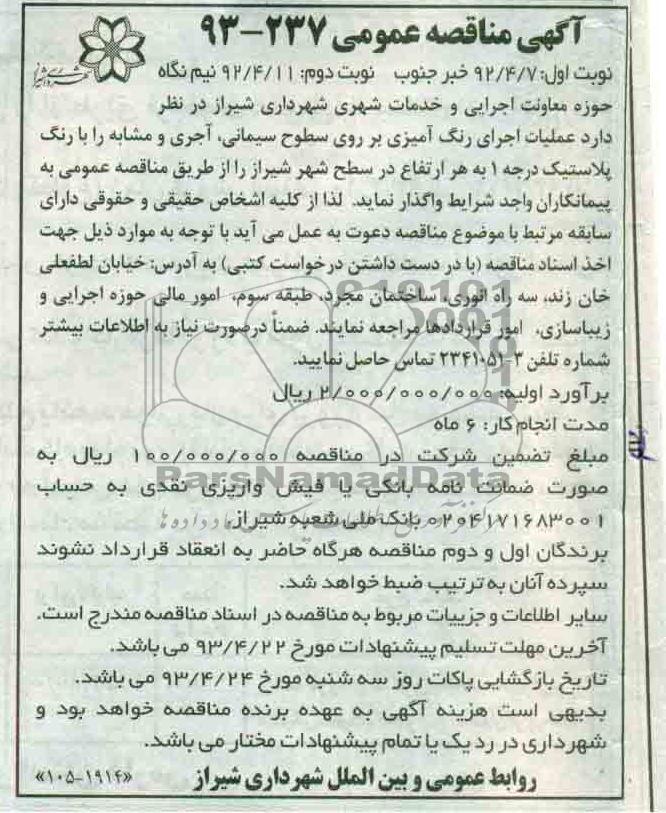 آگهی مناقصه عمومی ۲۳۷-۹۳
نوبت اول: ۹۲/۴/۷ خبر جنوب نوبت دوم: ۹۲/۴/۱۱ نیم نگاه
حوزه معاونت اجرایی و خدمات شهری شهرداری شیراز در نظر
دارد عملیات اجرای رنگ آمیزی بر روی سطوح سیمانی، آجری و مشابه را با رنگ
پلاستیک درجه ۱ به هر ارتفاع در سطح شهر شیراز را از طریق مناقصه عمومی به
پیمانکاران واجد شرایط واگذار نماید. لذا از کلیه اشخاص حقیقی و حقوقی دارای
سابقه مرتبط با موضوع مناقصه دعوت به عمل می آید با توجه به موارد ذیل جهت
اخذ اسناد مناقصه (با در دست داشتن درخواست کتبی) به آدرس: خیابان لطفعلی
خان زند، سه راه انوری، ساختمان مجرد، طبقه سوم، امور مالی حوزه اجرایی و
زیباسازی، امور قراردادها مراجعه نمایند. ضمناً درصورت نیاز به اطلاعات بیشتر
شماره تلفن ۳-۲۳۴۱۰۵۱ تماس حاصل نمایید.
برآورد اولیه: ۲/۰۰۰/۰۰۰/۰۰۰ ریال
مدت انجام کار: ۶ ماه
مبلغ تضمین شرکت در مناقصه ۱۰۰/۰۰۰/۰۰۰ ریال به
صورت ضمانت نامه بانکی یا فیش واریزی نقدی به حساب
۰۲۰۴۱۷۱۶۸۳۰۰۱ بانک ملی شعبه شیراز.
برندگان اول و دوم مناقصه هرگاه حاضر به انعقاد قرارداد نشوند
سپرده آنان به ترتیب ضبط خواهد شد.
سایر اطلاعات و جزییات مربوط به مناقصه در اسناد مناقصه مندرج است.
آخرین مهلت تسلیم پیشنهادات مورخ ۹۳/۴/۲۲ می باشد.
تاریخ بازگشایی پاکات روز سه شنبه مورخ ۹۳/۴/۲۴ می باشد.
بدیهی است هزینه آگهی به عهده برنده مناقصه خواهد بود و
شهرداری در رد یک یا تمام پیشنهادات مختار می باشد.
روابط عمومی و بین الملل شهرداری شیراز «۱۹۱۴-۱۰۵»
ParsNamadData